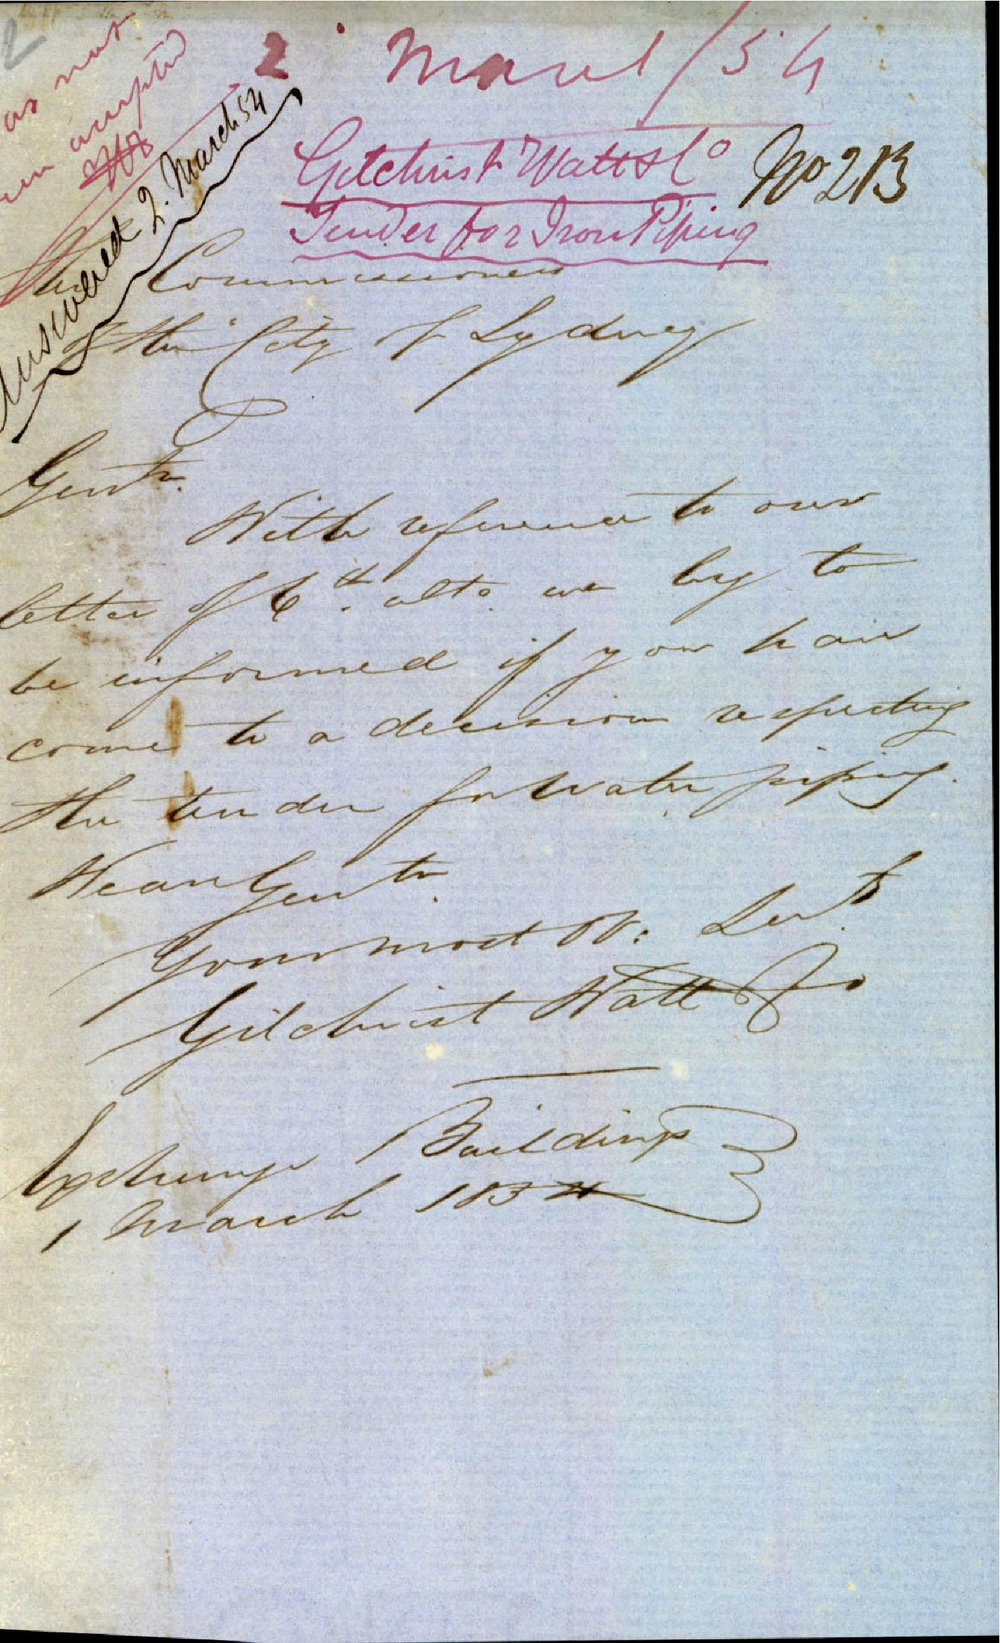 2
as not
been accepted
2 March / 54
Gilchrist Watt & Co
No 213
Tender for Iron Piping
Answered 2. March 54
The Commissioners
of the City of Sydney
Gentn.
With reference to our
letter of 6th. ulto. we beg to
be informed if you have
come to a decision respecting
the tender for Water piping.
We are Gentn.
Your most Ob: Servts.
Gilchrist Watt & Co
Exchange Buildings
1 March 1854